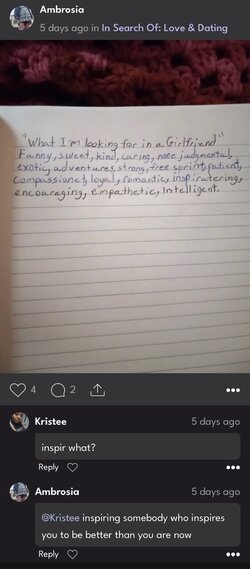 Ambrosia
5 days ago in In Search Of: Love & Dating
"What I'm looking for in a Girlfriend"
Funny, sweet, kind, caring, none judgmental,
exotic, adventures, strong, free spirit, patient,
Compassionet, loyal, romantic, Inspiratering,
encouraging, empathetic, Intelligent.
4
2
Kristee
5 days ago
inspir what?
Reply
Ambrosia
5 days ago
@Kristee inspiring somebody who inspires
you to be better than you are now
Reply